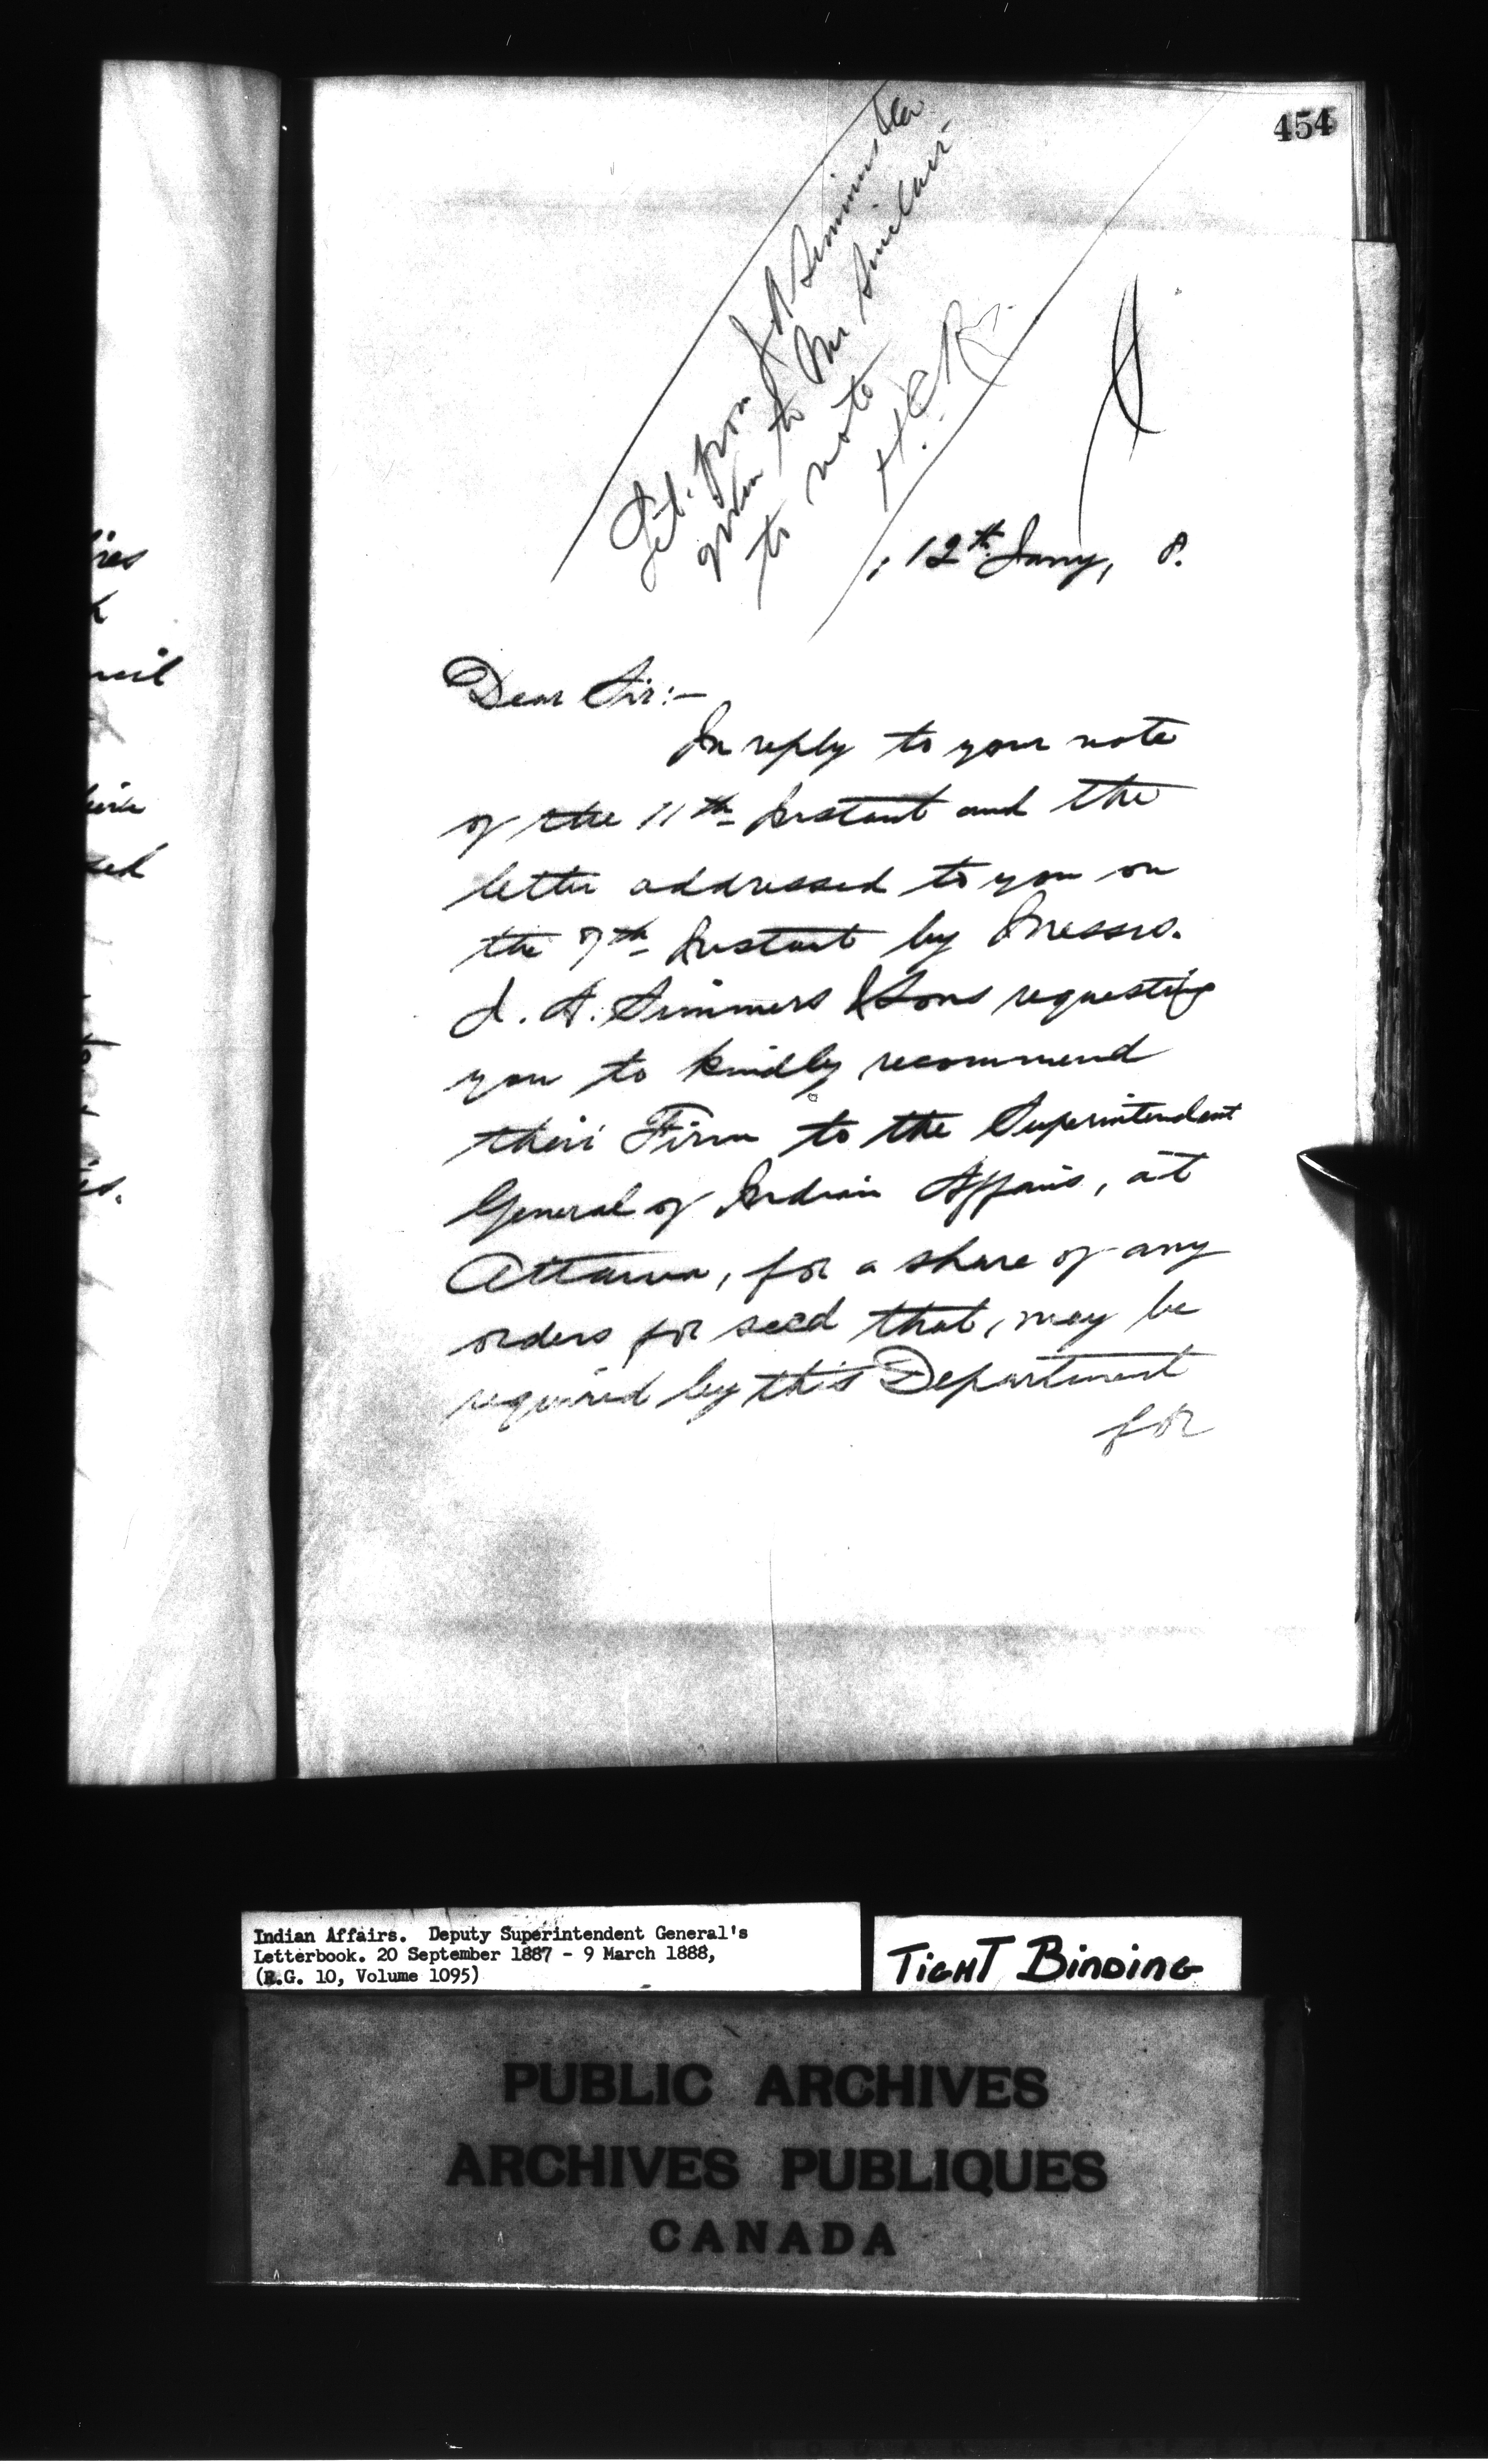 454
Let. from J A Simmers
given to Mr Sinclair
to note
H.C.R.
, 12th Jany, 8.
Dear Sir:—
In reply to your note
of the 11th Instant and the
letter addressed to you on
the 7th Instant by Messrs.
J. A. Simmers & Sons requesting
you to kindly recommend
their Firm to the Superintendent
General of Indian Affairs, at
Ottawa, for a share of any
orders for seed that, may be
required by this Department
for
Indian Affairs. Deputy Superintendent General's
Letterbook. 20 September 1887 - 9 March 1888,
(R.G. 10, Volume 1095)
TIGHT BINDING
PUBLIC ARCHIVES
ARCHIVES PUBLIQUES
CANADA